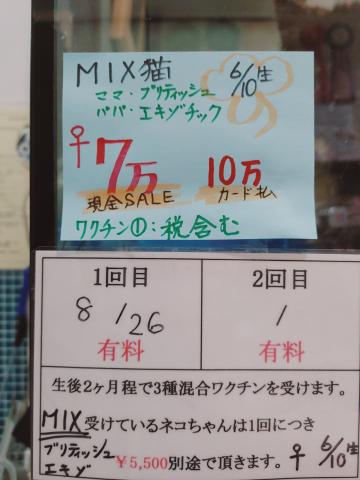 MIX猫 6/10生
ママ・ブリティッシュ
パパ・エキゾチック
♀7万 10万
現金SALE カード払
ワクチン①:税含む
1回目 2回目
8/26 /
有料 有料
生後2ヶ月程で3種混合ワクチンを受けます。
MIX受けているネコちゃんは1回につき
ブリティッシュ
エキゾ ¥5,500別途で頂きます。♀ 6/10生